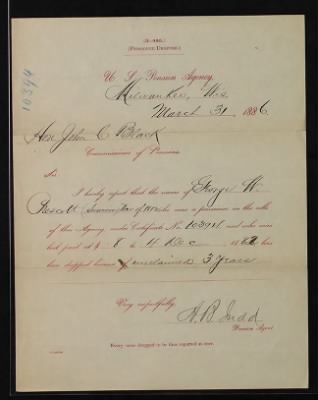 (3-496.)
(PENSIONER DROPPED.)
U. S. Pension Agency,
Milwaukee, Wis
March 31 1886
10394
Hon John C Black
Commissioner of Pensions.
Sir:
I hereby report that the name of George W.
who was a pensioner on the rolls
of this Agency under Certificate No. and who was
last paid at $ 8 to 4 Dec 1882, has
been dropped because of unclaimed 3 years
Very respectfully,
A B Judd
Pension Agent.
Every name dropped to be thus reported at once.